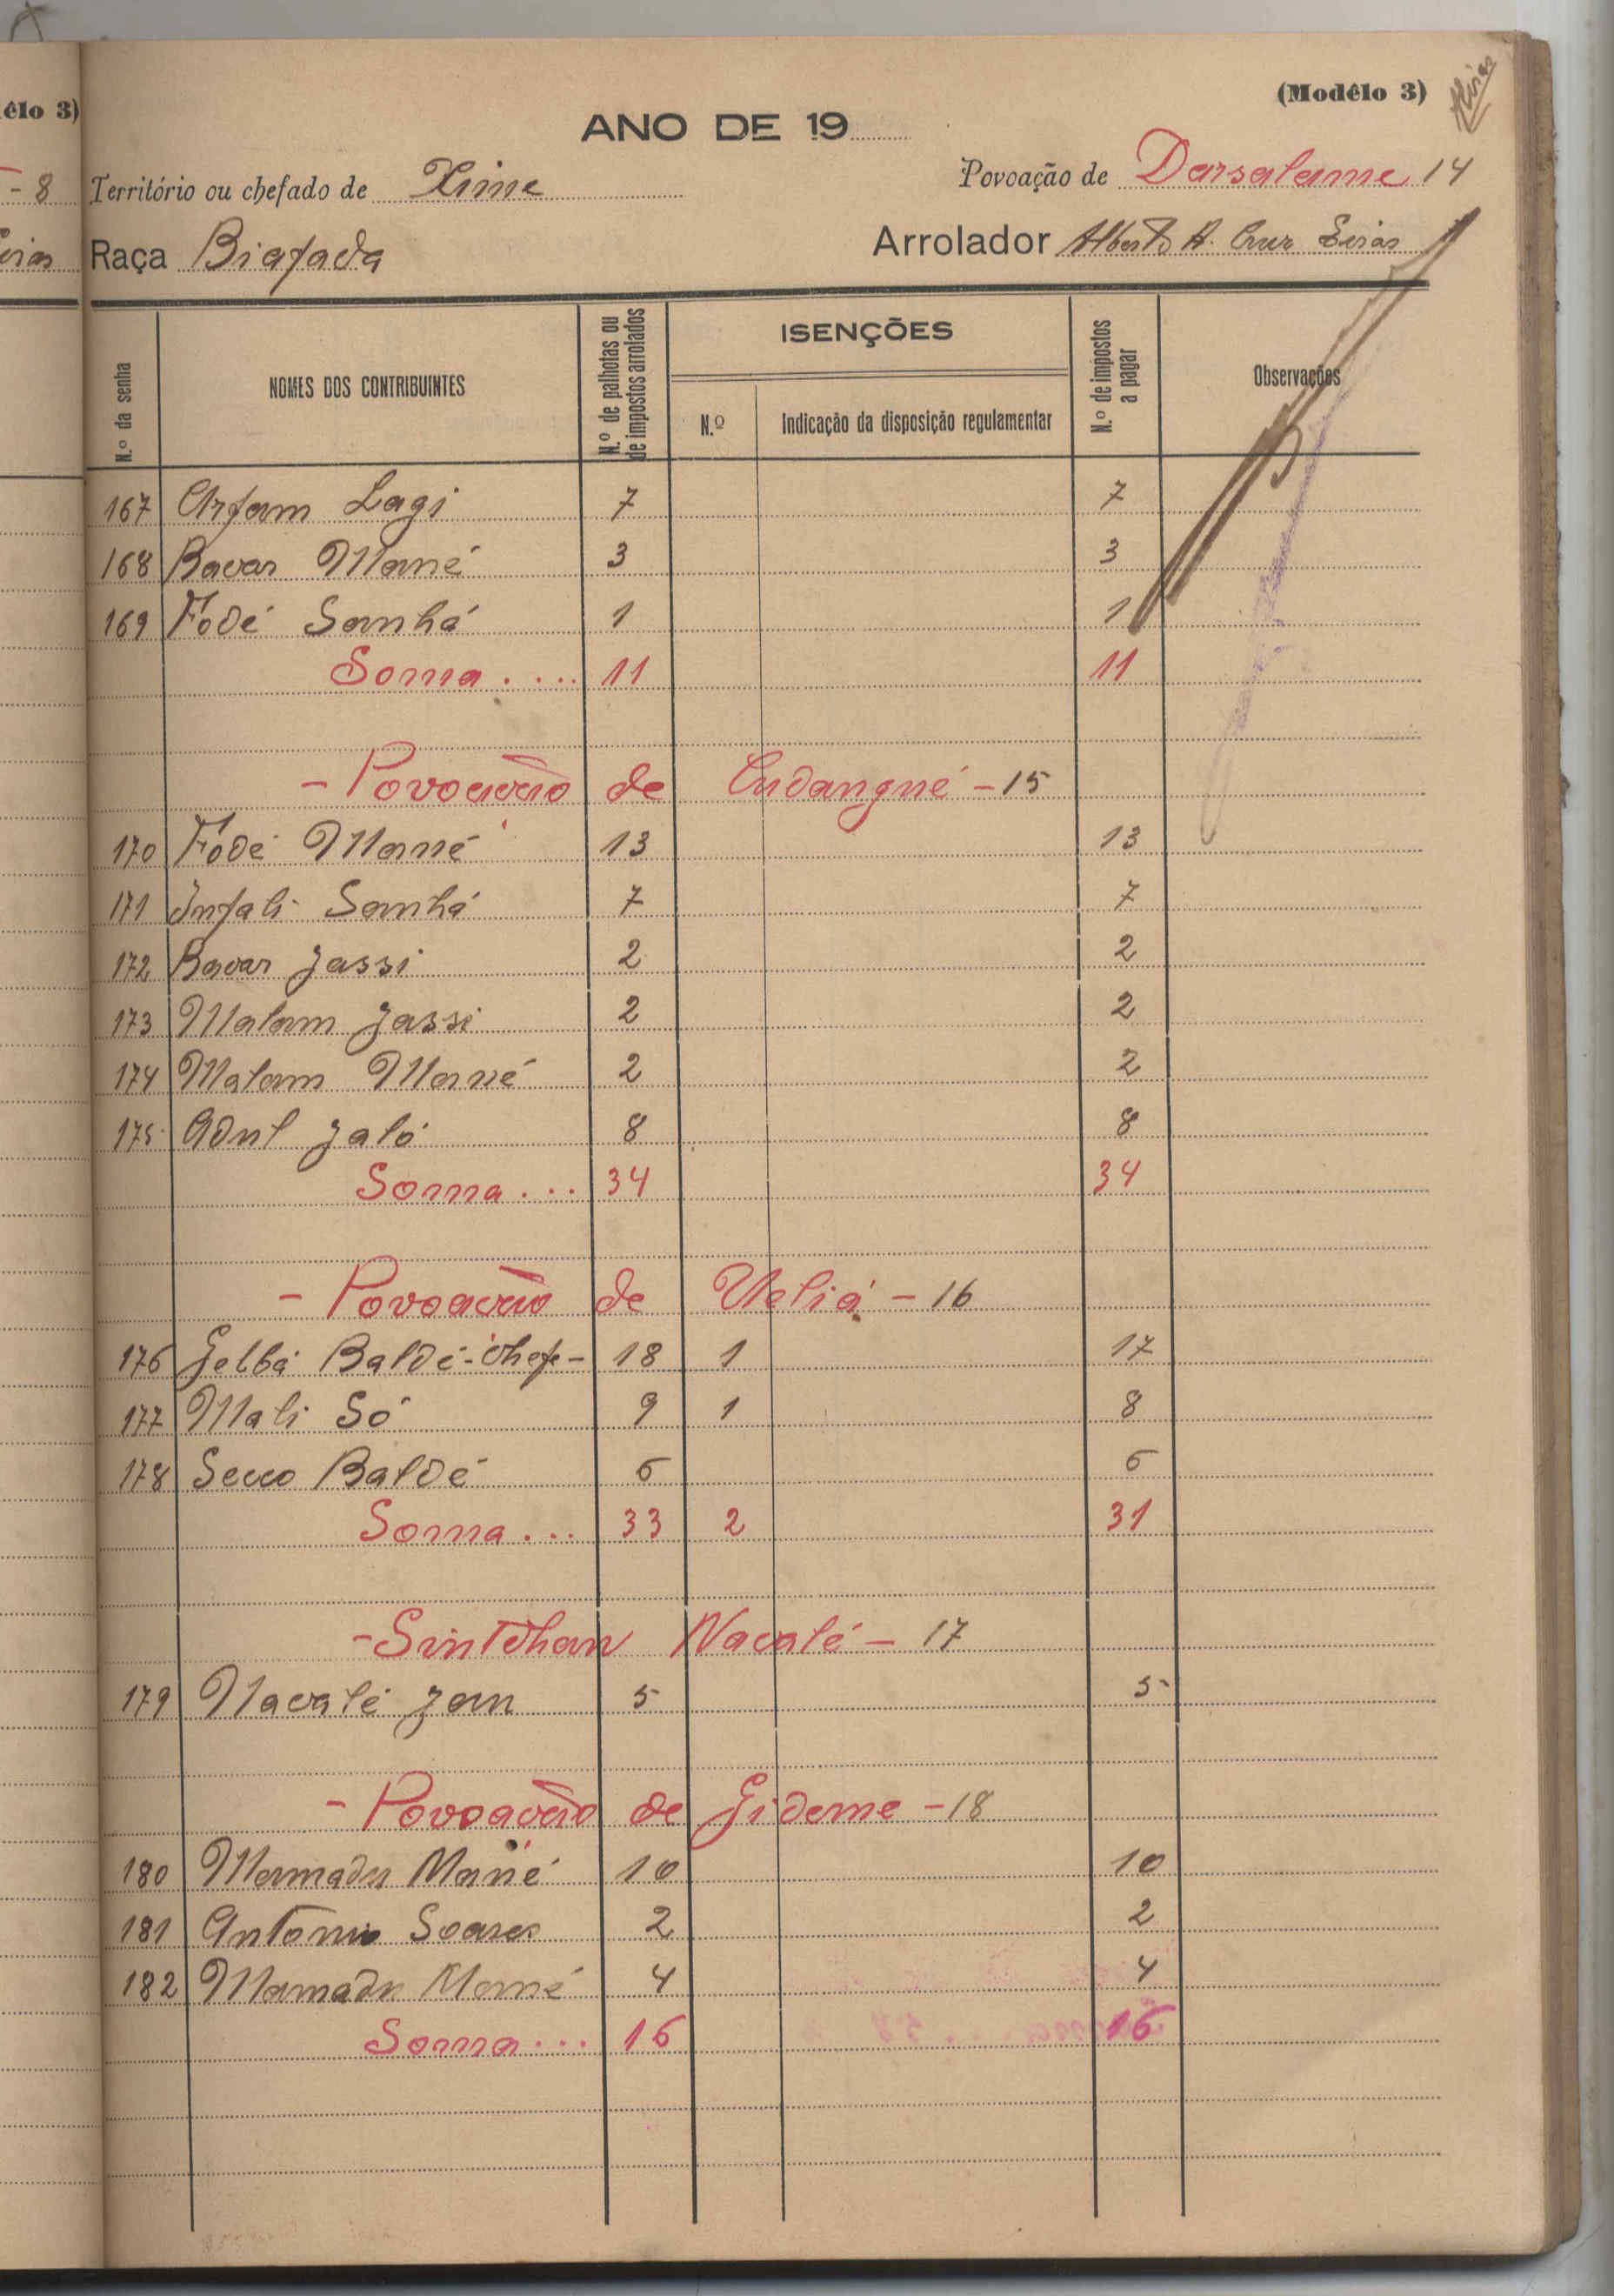 êlo 3)
(Modêlo 3)
ANO DE 19
- 8
Território ou chefado de Xime
Povoação de Darsalame 14
Raça Biafada
Arrolador Alberto A. Cruz Eiras
N.º da senha
NOMES DOS CONTRIBUINTES
N.º de palhotas ou de impostos arrolados
ISENÇÕES
N.º
Indicação da disposição regulamentar
N.º de impostos a pagar
Observações
167 Arfam Lagi 7 7
168 Bacar Mané 3 3
169 Fodé Sanhá 1 1
Soma .... 11 11
- Povoação de Cudangué - 15
170 Fodé Mané 13 13
171 Infali Sanhá 7 7
172 Bacar Jassi 2 2
173 Malam Jassi 2 2
174 Malam Mané 2 2
175 Adul Jaló 8 8
Soma ... 34 34
- Povoação de Ueliá - 16
176 Gelbá Baldé - chefe - 18 1 17
177 Mali Só 9 1 8
178 Secco Baldé 6 6
Soma ... 33 2 31
- Sintchan Nacalé - 17
179 Nacalé Jan 5 5
- Povoação de Gideme - 18
180 Mamadu Mané 10 10
181 Antonio Soares 2 2
182 Mamadu Mané 4 4
Soma ... 16 16